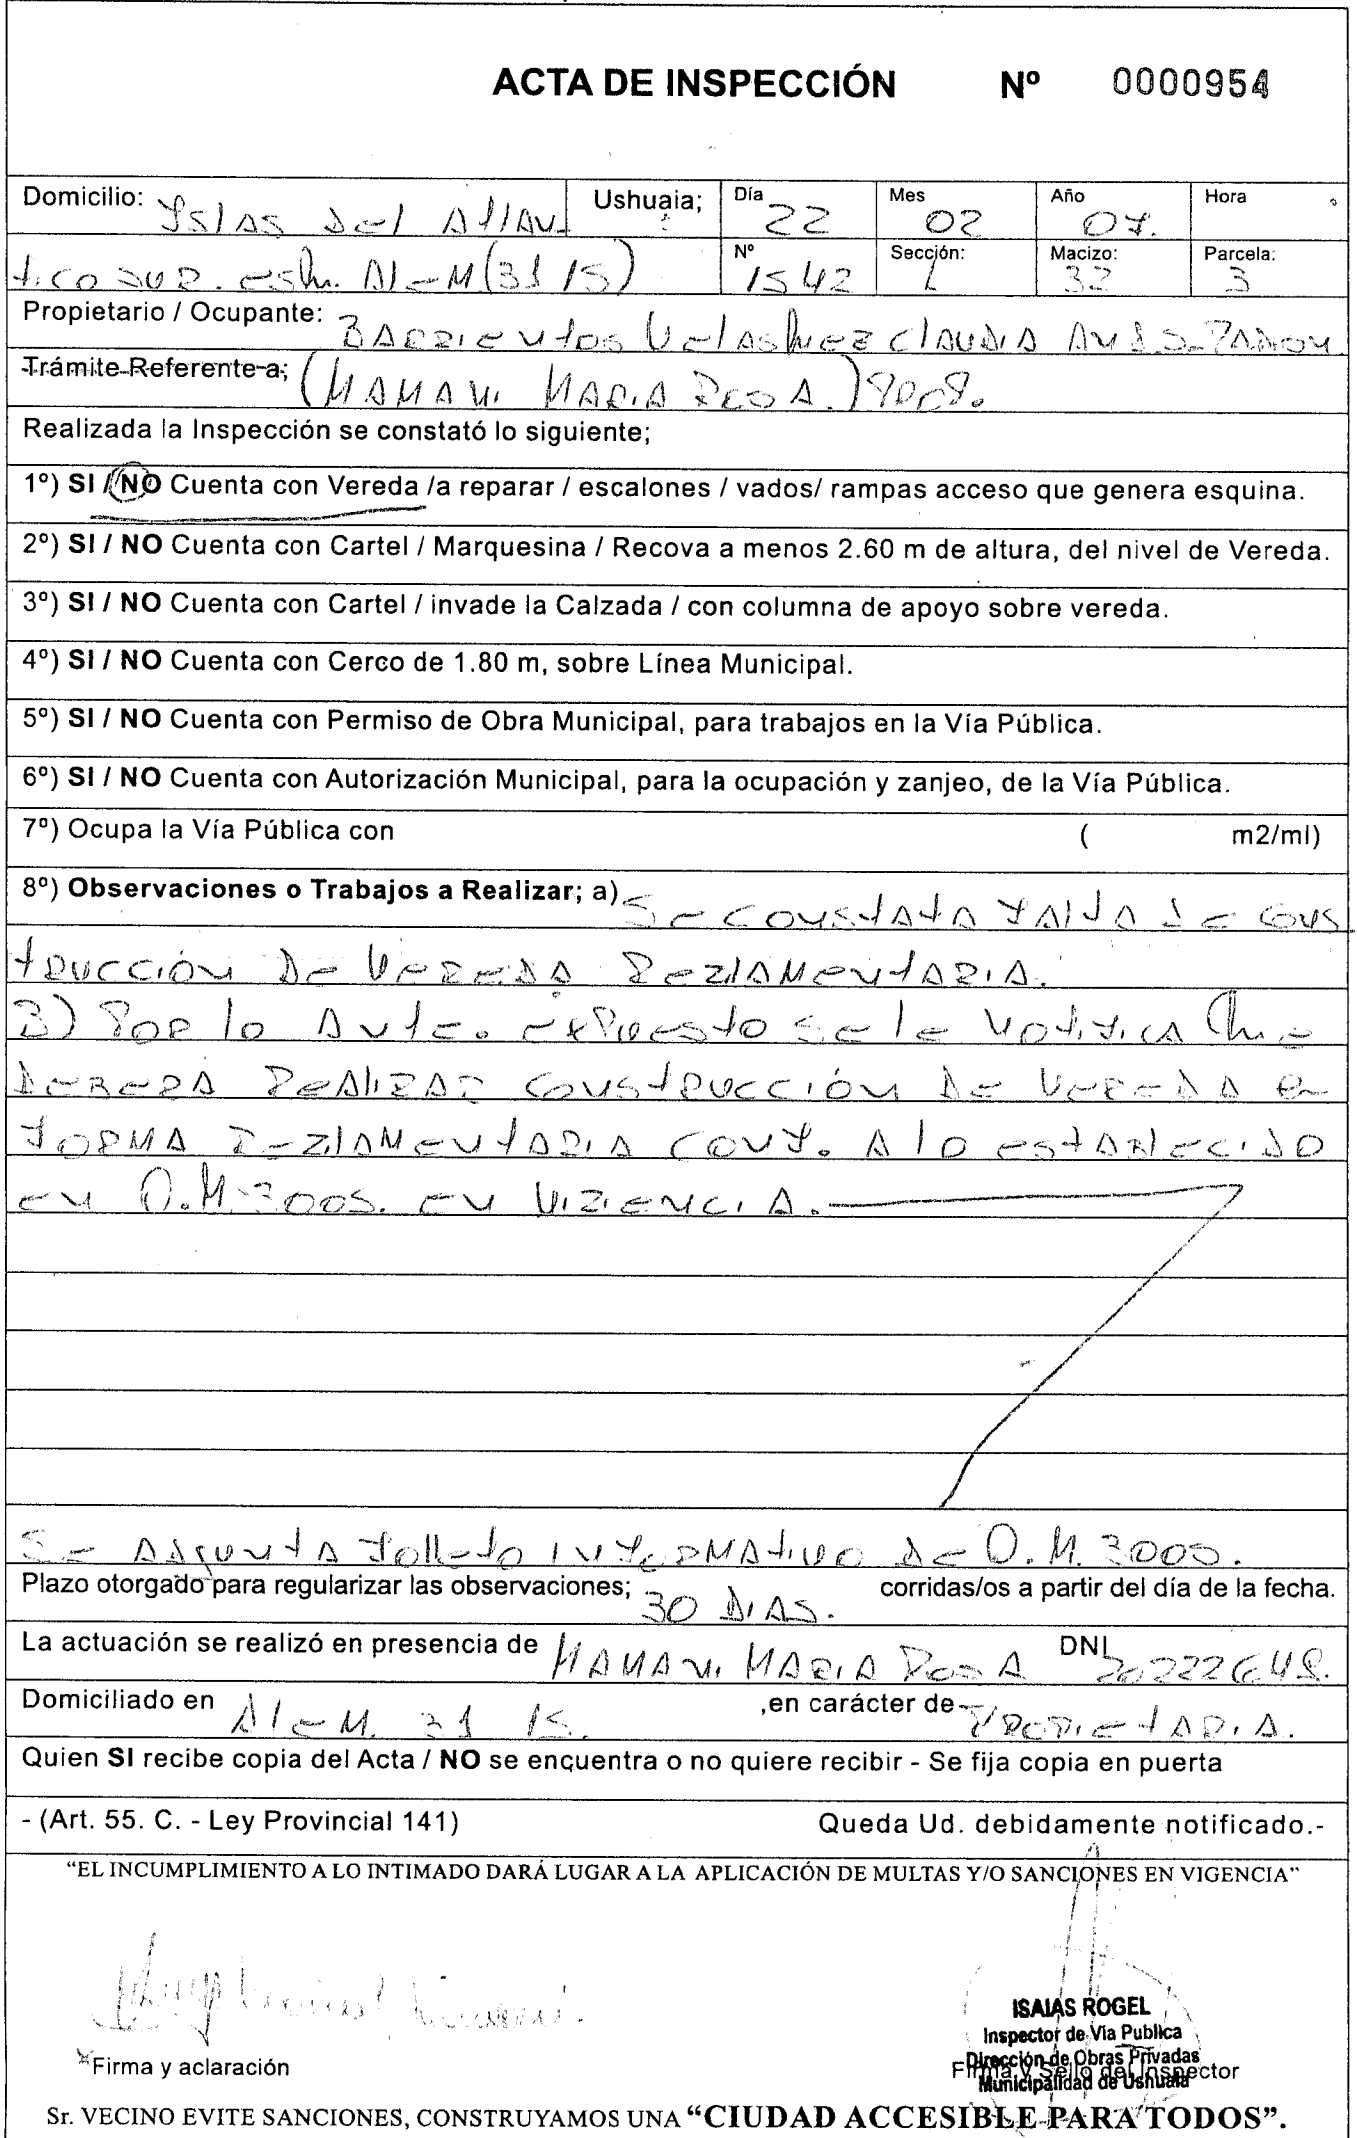 ACTA DE INSPECCIÓN Nº 0000954
Domicilio: Islas Del Atlan Ushuaia; Día 22 Mes 02 Año 07. Hora
tico sur. esq. Alem (31 15) Nº 1542 Sección: L Macizo: 32 Parcela: 3
Propietario / Ocupante: BARRIENTOS VELASQUEZ CLAUDIA AND S-PADON
Trámite Referente a; (MAMANI MARIA ROSA.)
Realizada la Inspección se constató lo siguiente;
1º) SI / NO Cuenta con Vereda /a reparar / escalones / vados/ rampas acceso que genera esquina.
2º) SI / NO Cuenta con Cartel / Marquesina / Recova a menos 2.60 m de altura, del nivel de Vereda.
3º) SI / NO Cuenta con Cartel / invade la Calzada / con columna de apoyo sobre vereda.
4º) SI / NO Cuenta con Cerco de 1.80 m, sobre Línea Municipal.
5º) SI / NO Cuenta con Permiso de Obra Municipal, para trabajos en la Vía Pública.
6º) SI / NO Cuenta con Autorización Municipal, para la ocupación y zanjeo, de la Vía Pública.
7º) Ocupa la Vía Pública con ( m2/ml)
8º) Observaciones o Trabajos a Realizar; a) Se constata falta de cons
trucción de vereda reglamentaria.
B) Por lo ante. expuesto se le notifica que
debera realizar construcción de vereda en
forma reglamentaria conf. a lo establecido
en O.M. 3005. en vigencia.
Se adjunta folleto informativo de O.M. 3005.
Plazo otorgado para regularizar las observaciones; 30 DIAS. corridas/os a partir del día de la fecha.
La actuación se realizó en presencia de MAMANI MARIA ROSA DNI 20222648.
Domiciliado en Alem. 31 15. ,en carácter de PROPIETARIA.
Quien SI recibe copia del Acta / NO se encuentra o no quiere recibir - Se fija copia en puerta
- (Art. 55. C. - Ley Provincial 141) Queda Ud. debidamente notificado.-
“EL INCUMPLIMIENTO A LO INTIMADO DARÁ LUGAR A LA APLICACIÓN DE MULTAS Y/O SANCIONES EN VIGENCIA”
ISAIAS ROGEL
Inspector de Via Publica
Dirección de Obras Privadas
Municipalidad de Ushuaia
Firma y aclaración Firma y Sello del Inspector
Sr. VECINO EVITE SANCIONES, CONSTRUYAMOS UNA “CIUDAD ACCESIBLE PARA TODOS”.